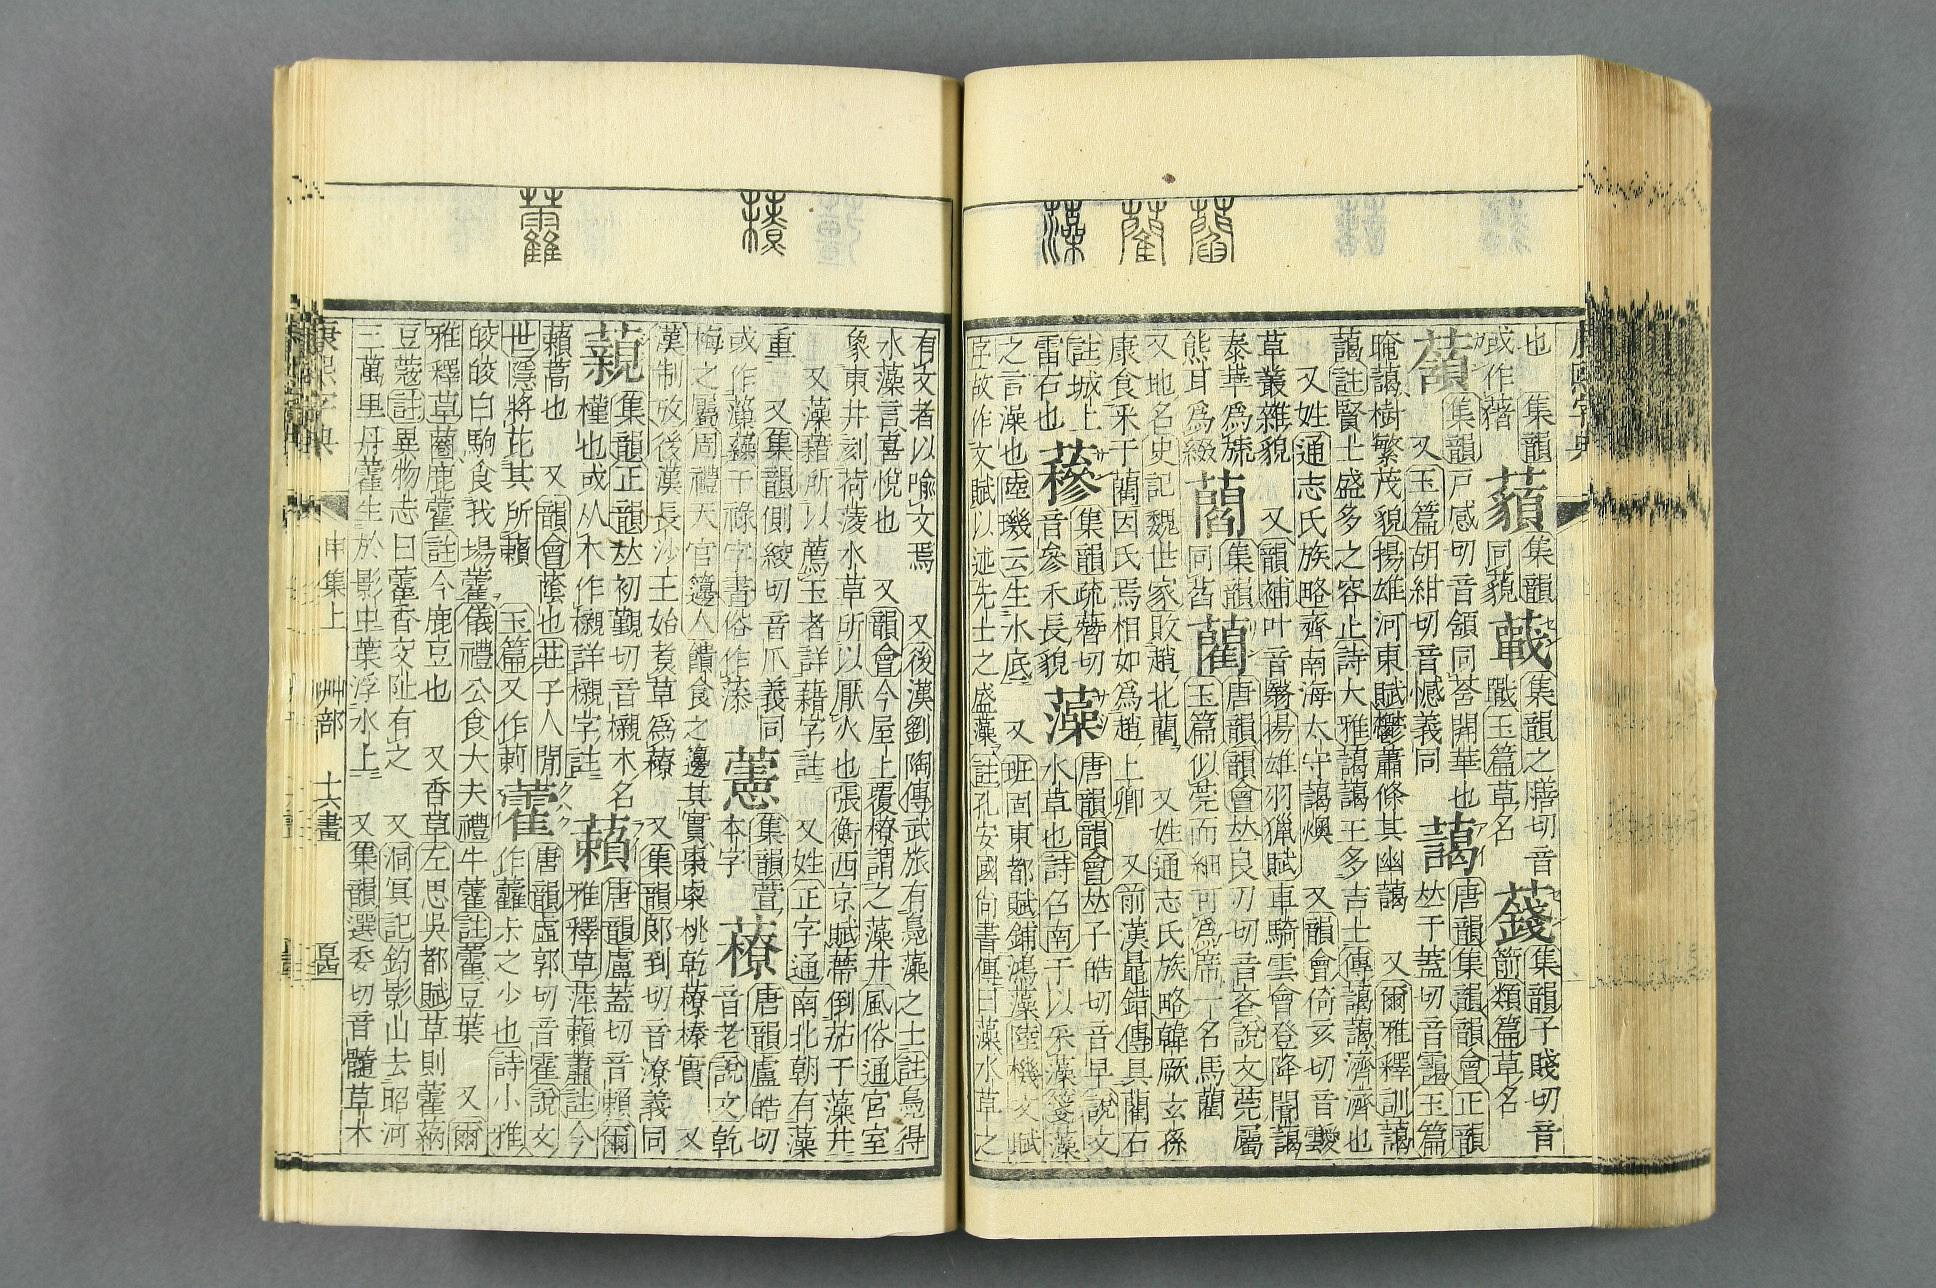 也　集韻
或作蕕
藾集韻
同藐
蕺集韻之膳切音
戰玉篇草名
䔐集韻子賤切音
箭類篇草名
集韻戸感切音頷同莟開華也
又玉篇胡紺切音憾義同
藹唐韻集韻韻會正韻
𠀤于蓋切音靄玉篇
晻藹樹繁茂貌揚雄河東賦鬱蕭條其幽藹　又爾雅釋訓藹
藹註賢士盛多之容止詩大雅藹藹王多吉士傳藹藹濟濟也
又姓通志氏族略齊南海太守藹煥　又韻會倚亥切音靉
草叢雜貌　又韻補叶音翳揚雄羽獵賦車騎雲會登降闇藹
泰華爲旒
熊耳爲綴
藺集韻
同莟
藺唐韻韻會𠀤良刃切音吝說文莞屬
玉篇似莞而細可爲席一名馬藺
又地名史記魏世家敗趙北藺　又姓通志氏族略韓厥玄孫
康食采于藺因氏焉相如爲趙上卿　又前漢鼂錯傳具藺石
註城上
雷石也
䅟集韻疏簪切
音參禾長貌
藻唐韻韻會𠀤子皓切音早說文
水草也詩召南于以采藻箋藻
之言澡也陸璣云生水底　又班固東都賦鋪鴻藻陸機文賦
序故作文賦以述先士之盛藻註孔安國尙書傳曰藻水草之
有文者以喩文焉　又後漢劉陶傳武旅有鳧藻之士註鳧得
水藻言喜悅也　又韻會今屋上覆橑謂之藻井風俗通宮室
象東井刻荷菱水草所以厭火也張衡西京賦蔕倒茄于藻井
又藻藉所以薦玉者詳藉字註　又姓正字通南北朝有藻
重　又集韻側絞切音爪義同
或作薻䕯干祿字書俗作藻
藼集韻萱
本字
䕩唐韻盧皓切
音老說文乾
梅之屬周禮天官籩人饋食之籩其實棗桌桃乾䕩榛實　又
漢制攷後漢長沙王始煑草爲䕩　又集韻郞到切音潦義同
藽集韻正韻𠀤初覲切音櫬木名
槿也或从木作櫬詳櫬字註
藾唐韻盧蓋切音賴爾
雅釋草苹藾蕭註今
藾蒿也　又韻會蔭也莊子人閒
世隱將芘其所藾　玉篇又作䓶
藿唐韻虛郭切音霍說文
作䕶尗之少也詩小雅
皎皎白駒食我場藿儀禮公食大夫禮牛藿註藿豆葉　又爾
雅釋草蔨鹿藿註今鹿豆也　又香草左思吳都賦草則藿蒳
豆蔻註異物志曰藿香交阯有之　又洞冥記釣影山去昭河
三萬里丹藿生於影中葉浮水上　又集韻選委切音髓草木
康熙字典
申集上　艸部　十六畫